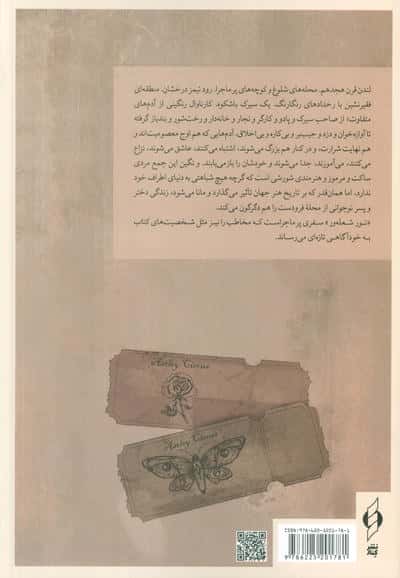 لندن قرن هجدهم. محله‌های شلوغ و کوچه‌های پرماجرا. رود تیمز درخشان. منطقه‌ای
فقیرنشین با رخدادهای رنگارنگ. یک سیرک باشکوه. کارناوال رنگینی از آدم‌های
متفاوت؛ از صاحب سیرک و پادو و کارگر و نجار و خانه‌دار و رخت‌شور و بندباز گرفته
تا آوازه‌خوان و دزد و جیب‌بر و بی‌کاره و بی‌اخلاق. آدم‌هایی که هم اوج معصومیت‌اند و
هم نهایت شرارت، و در کنار هم بزرگ می‌شوند، اشتباه می‌کنند، عاشق می‌شوند، نزاع
می‌کنند، می‌آموزند، جدا می‌شوند و خودشان را بازمی‌یابند. و نگین این جمع مردی
ساکت و مرموز و هنرمندی شورشی است که گرچه هیچ شباهتی به دنیای اطراف خود
ندارد، اما همان‌قدر که بر تاریخ هنر جهان تأثیر می‌گذارد و مانا می‌شود، زندگی دختر
و پسر نوجوانی از محلهٔ فرودست را هم دگرگون می‌کند.
«نور شعله‌ور» سفری پرماجراست که مخاطب را نیز مثل شخصیت‌های کتاب
به خودآگاهی تازه‌ای می‌رساند.
Circus
Astley Circus
9 786225 201781